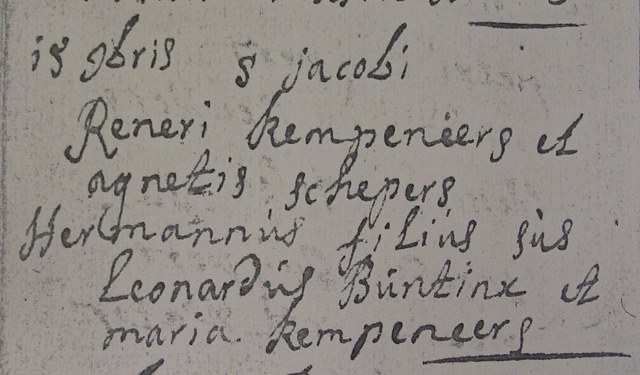 15 9bris s jacobi
Reneri kempeneers et
agnetis schepers
Hermannus filius sus
Leonardus Buntinx et
maria kempeneers